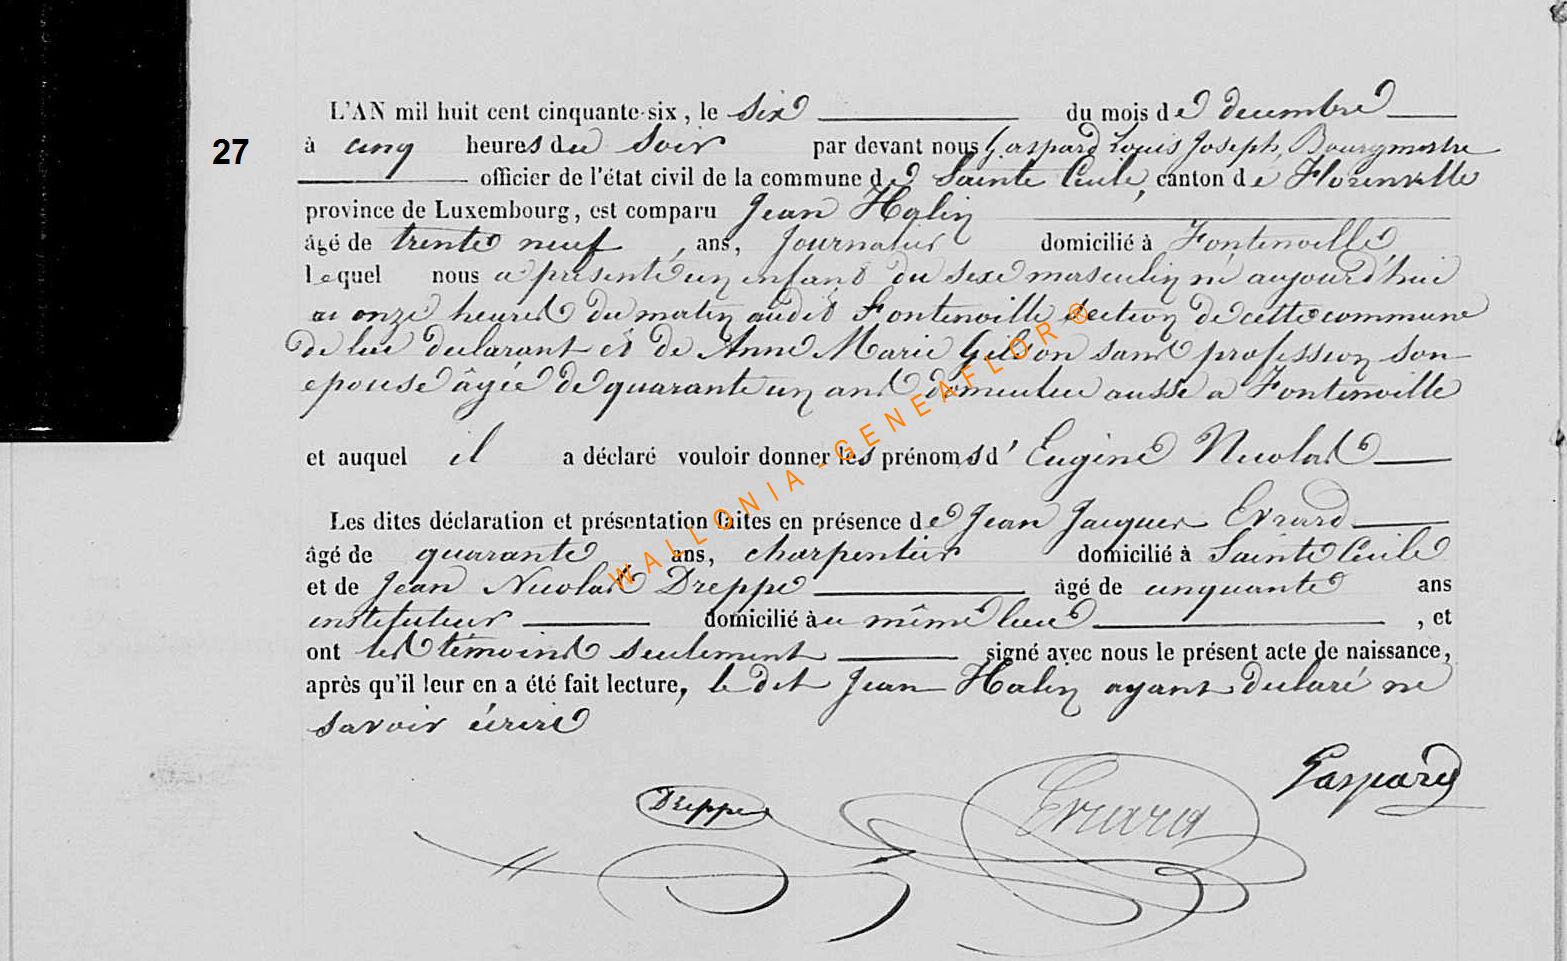 L'AN mil huit cent cinquante-six, le six du mois de decembre
27
à cinq heures du soir par devant nous Gaspard Louis Joseph, Bourgmestre
officier de l'état civil de la commune de Sainte Cecile, canton de Florenville
province de Luxembourg, est comparu Jean Halin
âgé de trente neuf ans, journalier domicilié à Fontenoille
lequel nous a présenté un enfant du sexe masculin né aujourd'hui
a onze heures du matin audit Fontenoille section de cette commune
de lui declarant et de Anne Marie Gilson sans profession son
epouse âgée de quarante un ans domiciliee aussi a Fontenoille
et auquel il a déclaré vouloir donner les prénoms d'Eugène Nicolas
Les dites déclaration et présentation faites en présence de Jean Jacques Evrard
âgé de quarante ans, charpentier domicilié à Sainte Cecile
et de Jean Nicolas Dreppe âgé de cinquante ans
instituteur domicilié au même lieu, et
ont les témoins seulement signé avec nous le présent acte de naissance,
après qu'il leur en a été fait lecture, le dit Jean Halin ayant declaré ne
savoir écrire
Gaspard
Dreppe Evrard
WALLONIA - GENEAFLOR ®